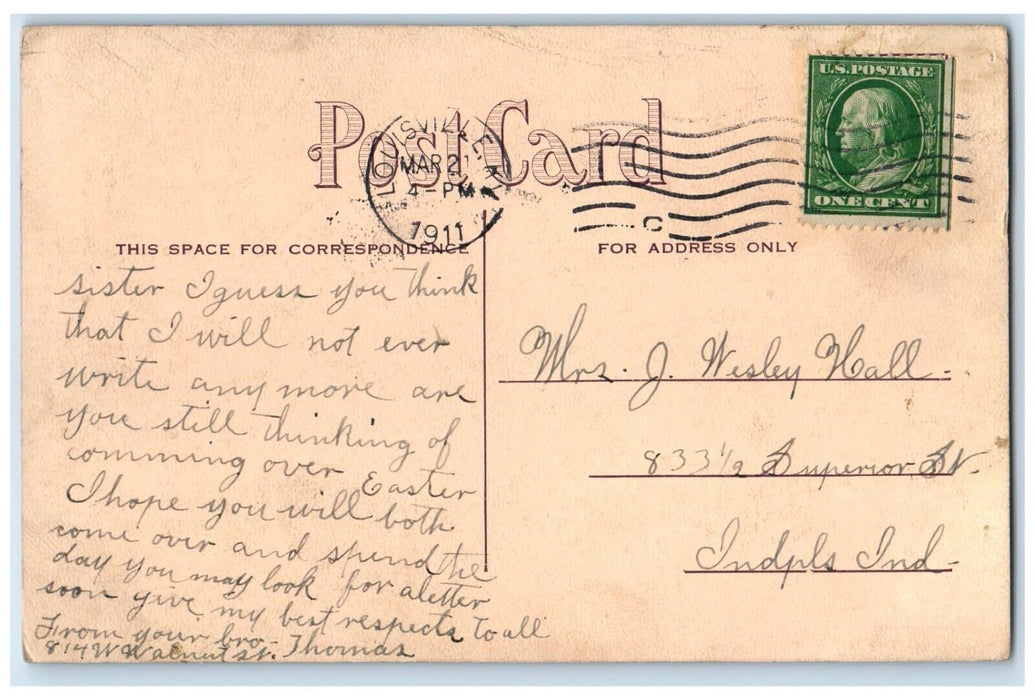 U.S. POSTAGE
ONE CENT
Post Card
LOUISVILLE, KY.
MAR 21
4-PM
1911
C
THIS SPACE FOR CORRESPONDENCE
sister I guess you think
that I will not ever
write any more are
you still thinking of
comming over Easter
I hope you will both
come over and spend the
day you may look for a letter
soon give my best respects to all
From your bro- Thomas
814 W Walnut st.
FOR ADDRESS ONLY
Mrs. J. Wesley Hall-
833 1/2 Superior St.
Indpls Ind-